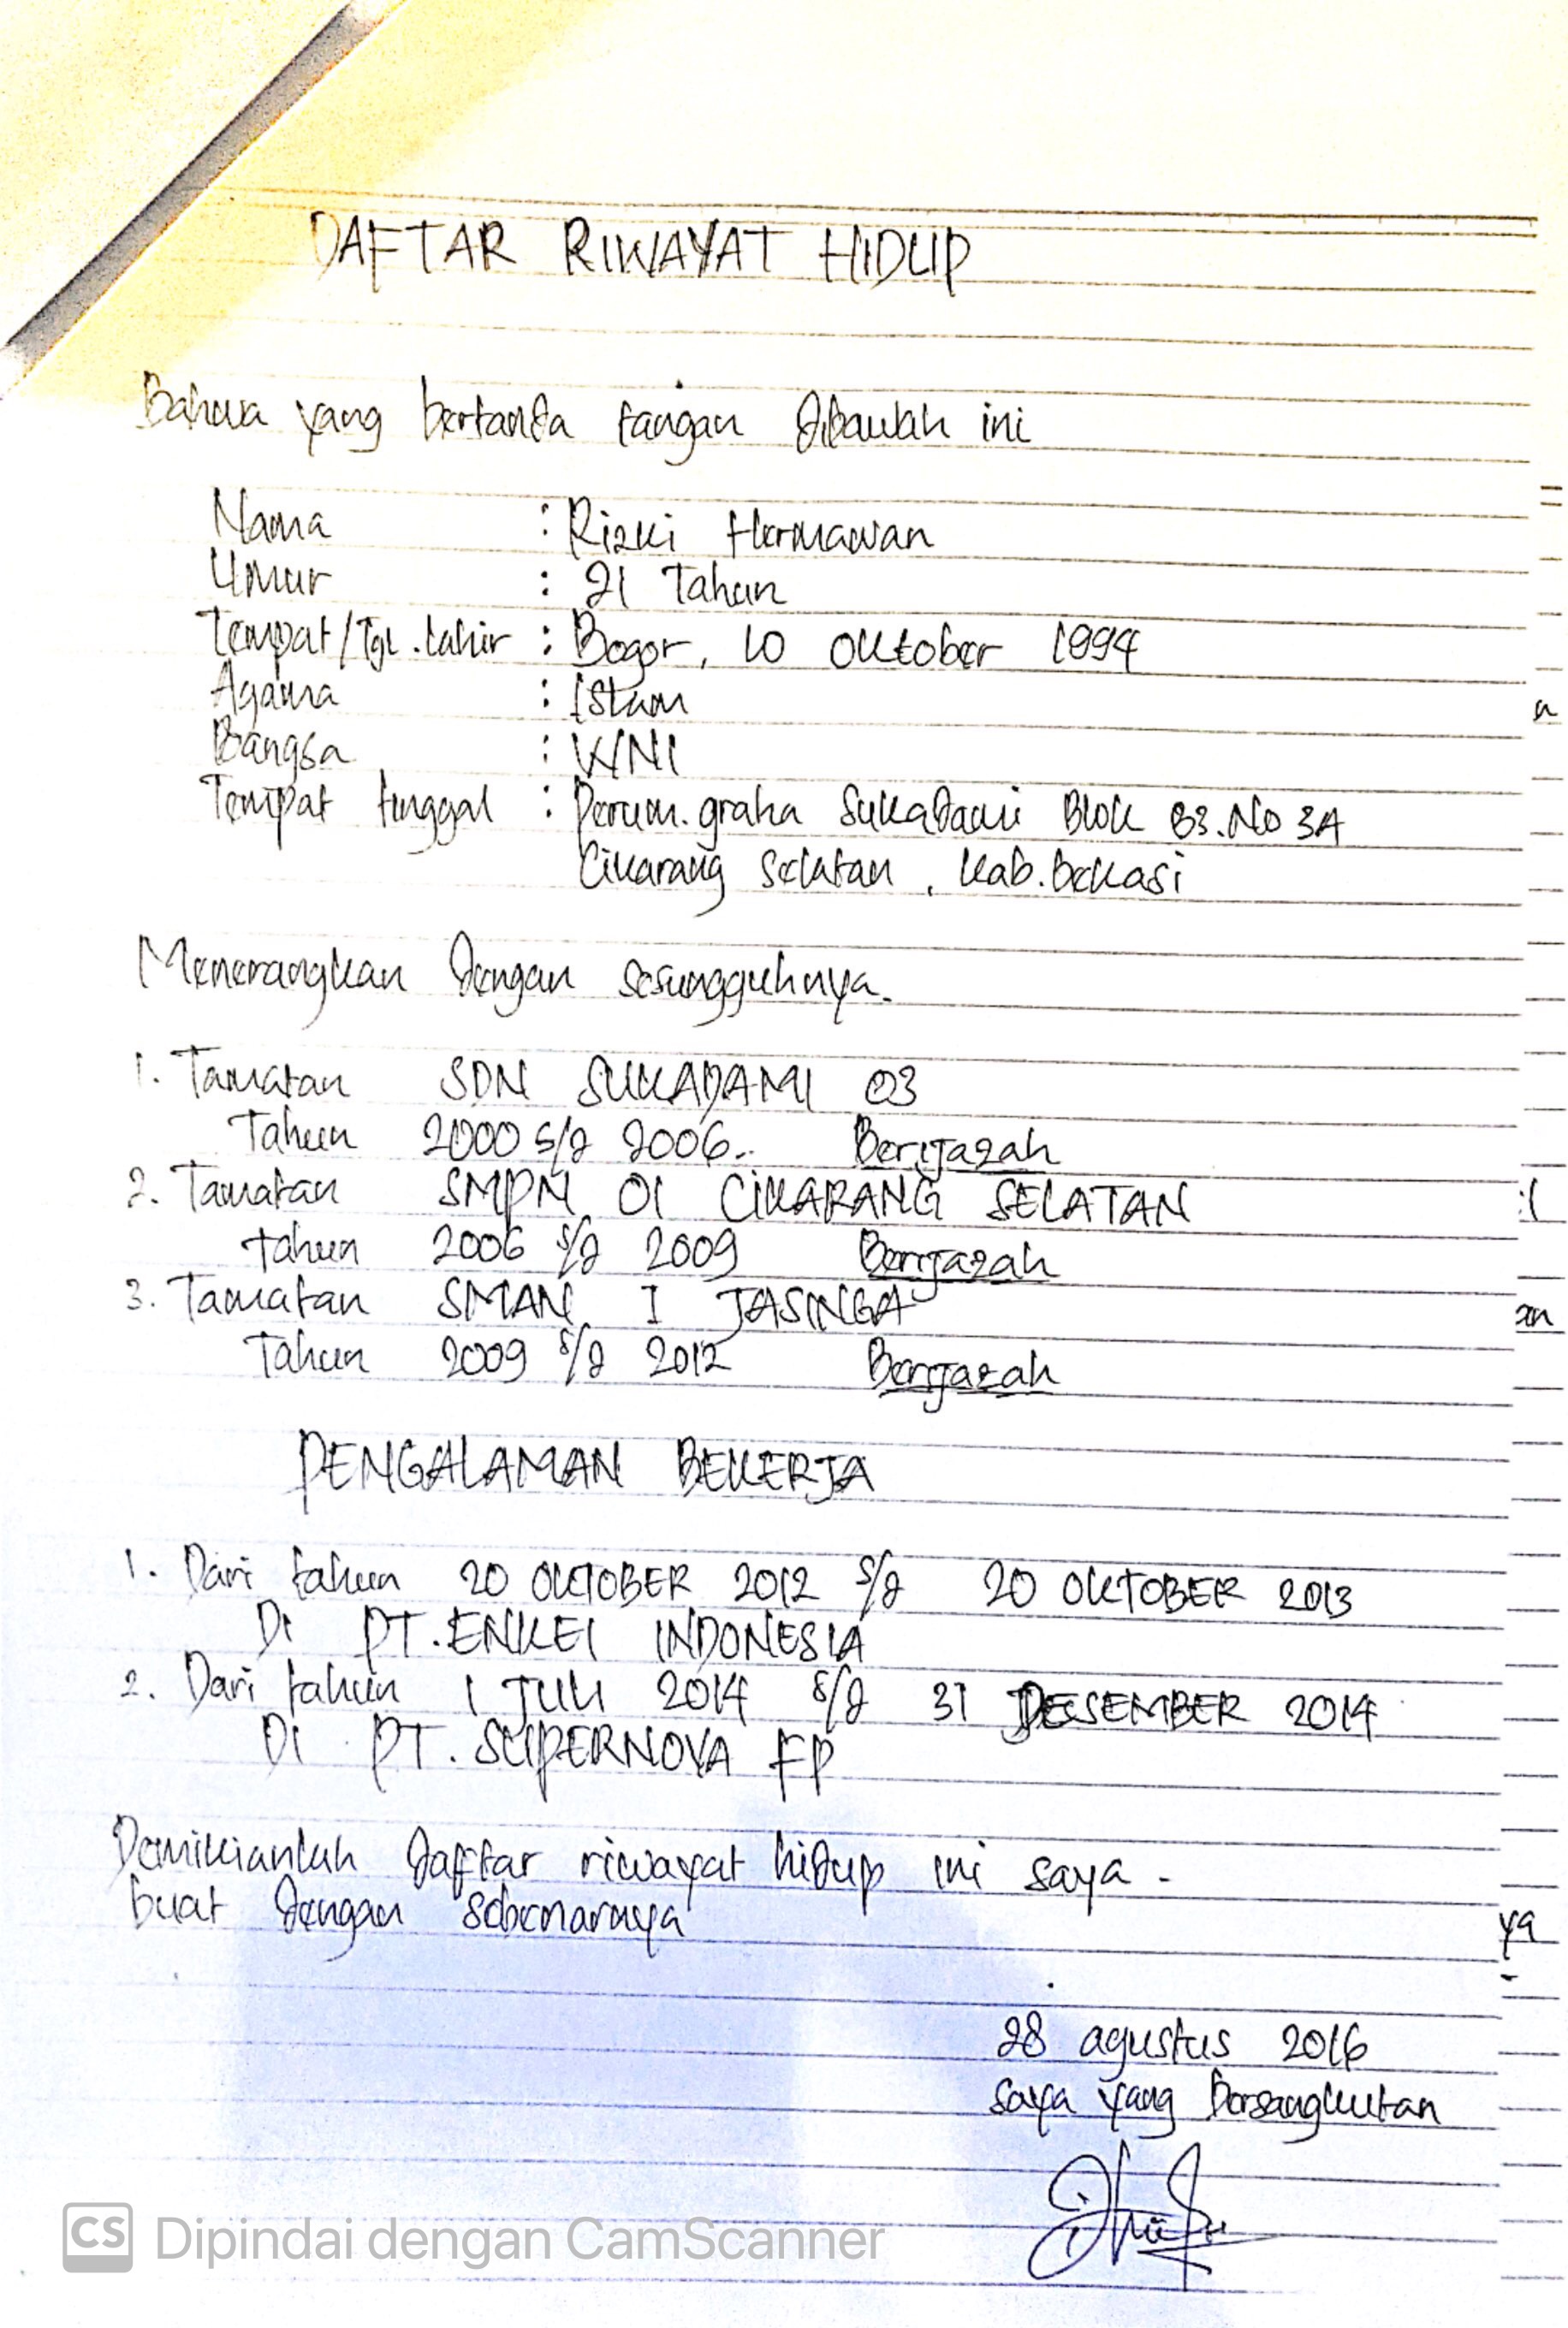 DAFTAR RIWAYAT HIDUP
Bahwa yang bertanda tangan dibawah ini
Nama : Rizki Hermawan
Umur : 21 Tahun
Tempat/Tgl.lahir : Bogor, 10 Oktober 1994
Agama : Islam
Bangsa : WNI
Tempat tinggal : Perum.graha Sukadami Blok B3.No 3A
Cikarang Selatan, kab.bekasi
Menerangkan dengan sesungguhnya.
1. Tamatan SDN SUKADAMI 03
Tahun 2000 s/d 2006.. Berijazah
2. Tamatan SMPN 01 CIKARANG SELATAN
tahun 2006 s/d 2009 Berijazah
3. Tamatan SMAN 1 JASINGA
Tahun 2009 s/d 2012 Berijazah
PENGALAMAN BEKERJA
1. Dari tahun 20 OKTOBER 2012 s/d 20 OKTOBER 2013
Di PT.ENKEI INDONESIA
2. Dari tahun 1 JULI 2014 s/d 31 DESEMBER 2014
Di PT. SUPERNOVA FP
Demikianlah daftar riwayat hidup ini saya -
buat dengan sebenarnya
28 agustus 2016
saya yang bersangkutan
CS Dipindai dengan CamScanner